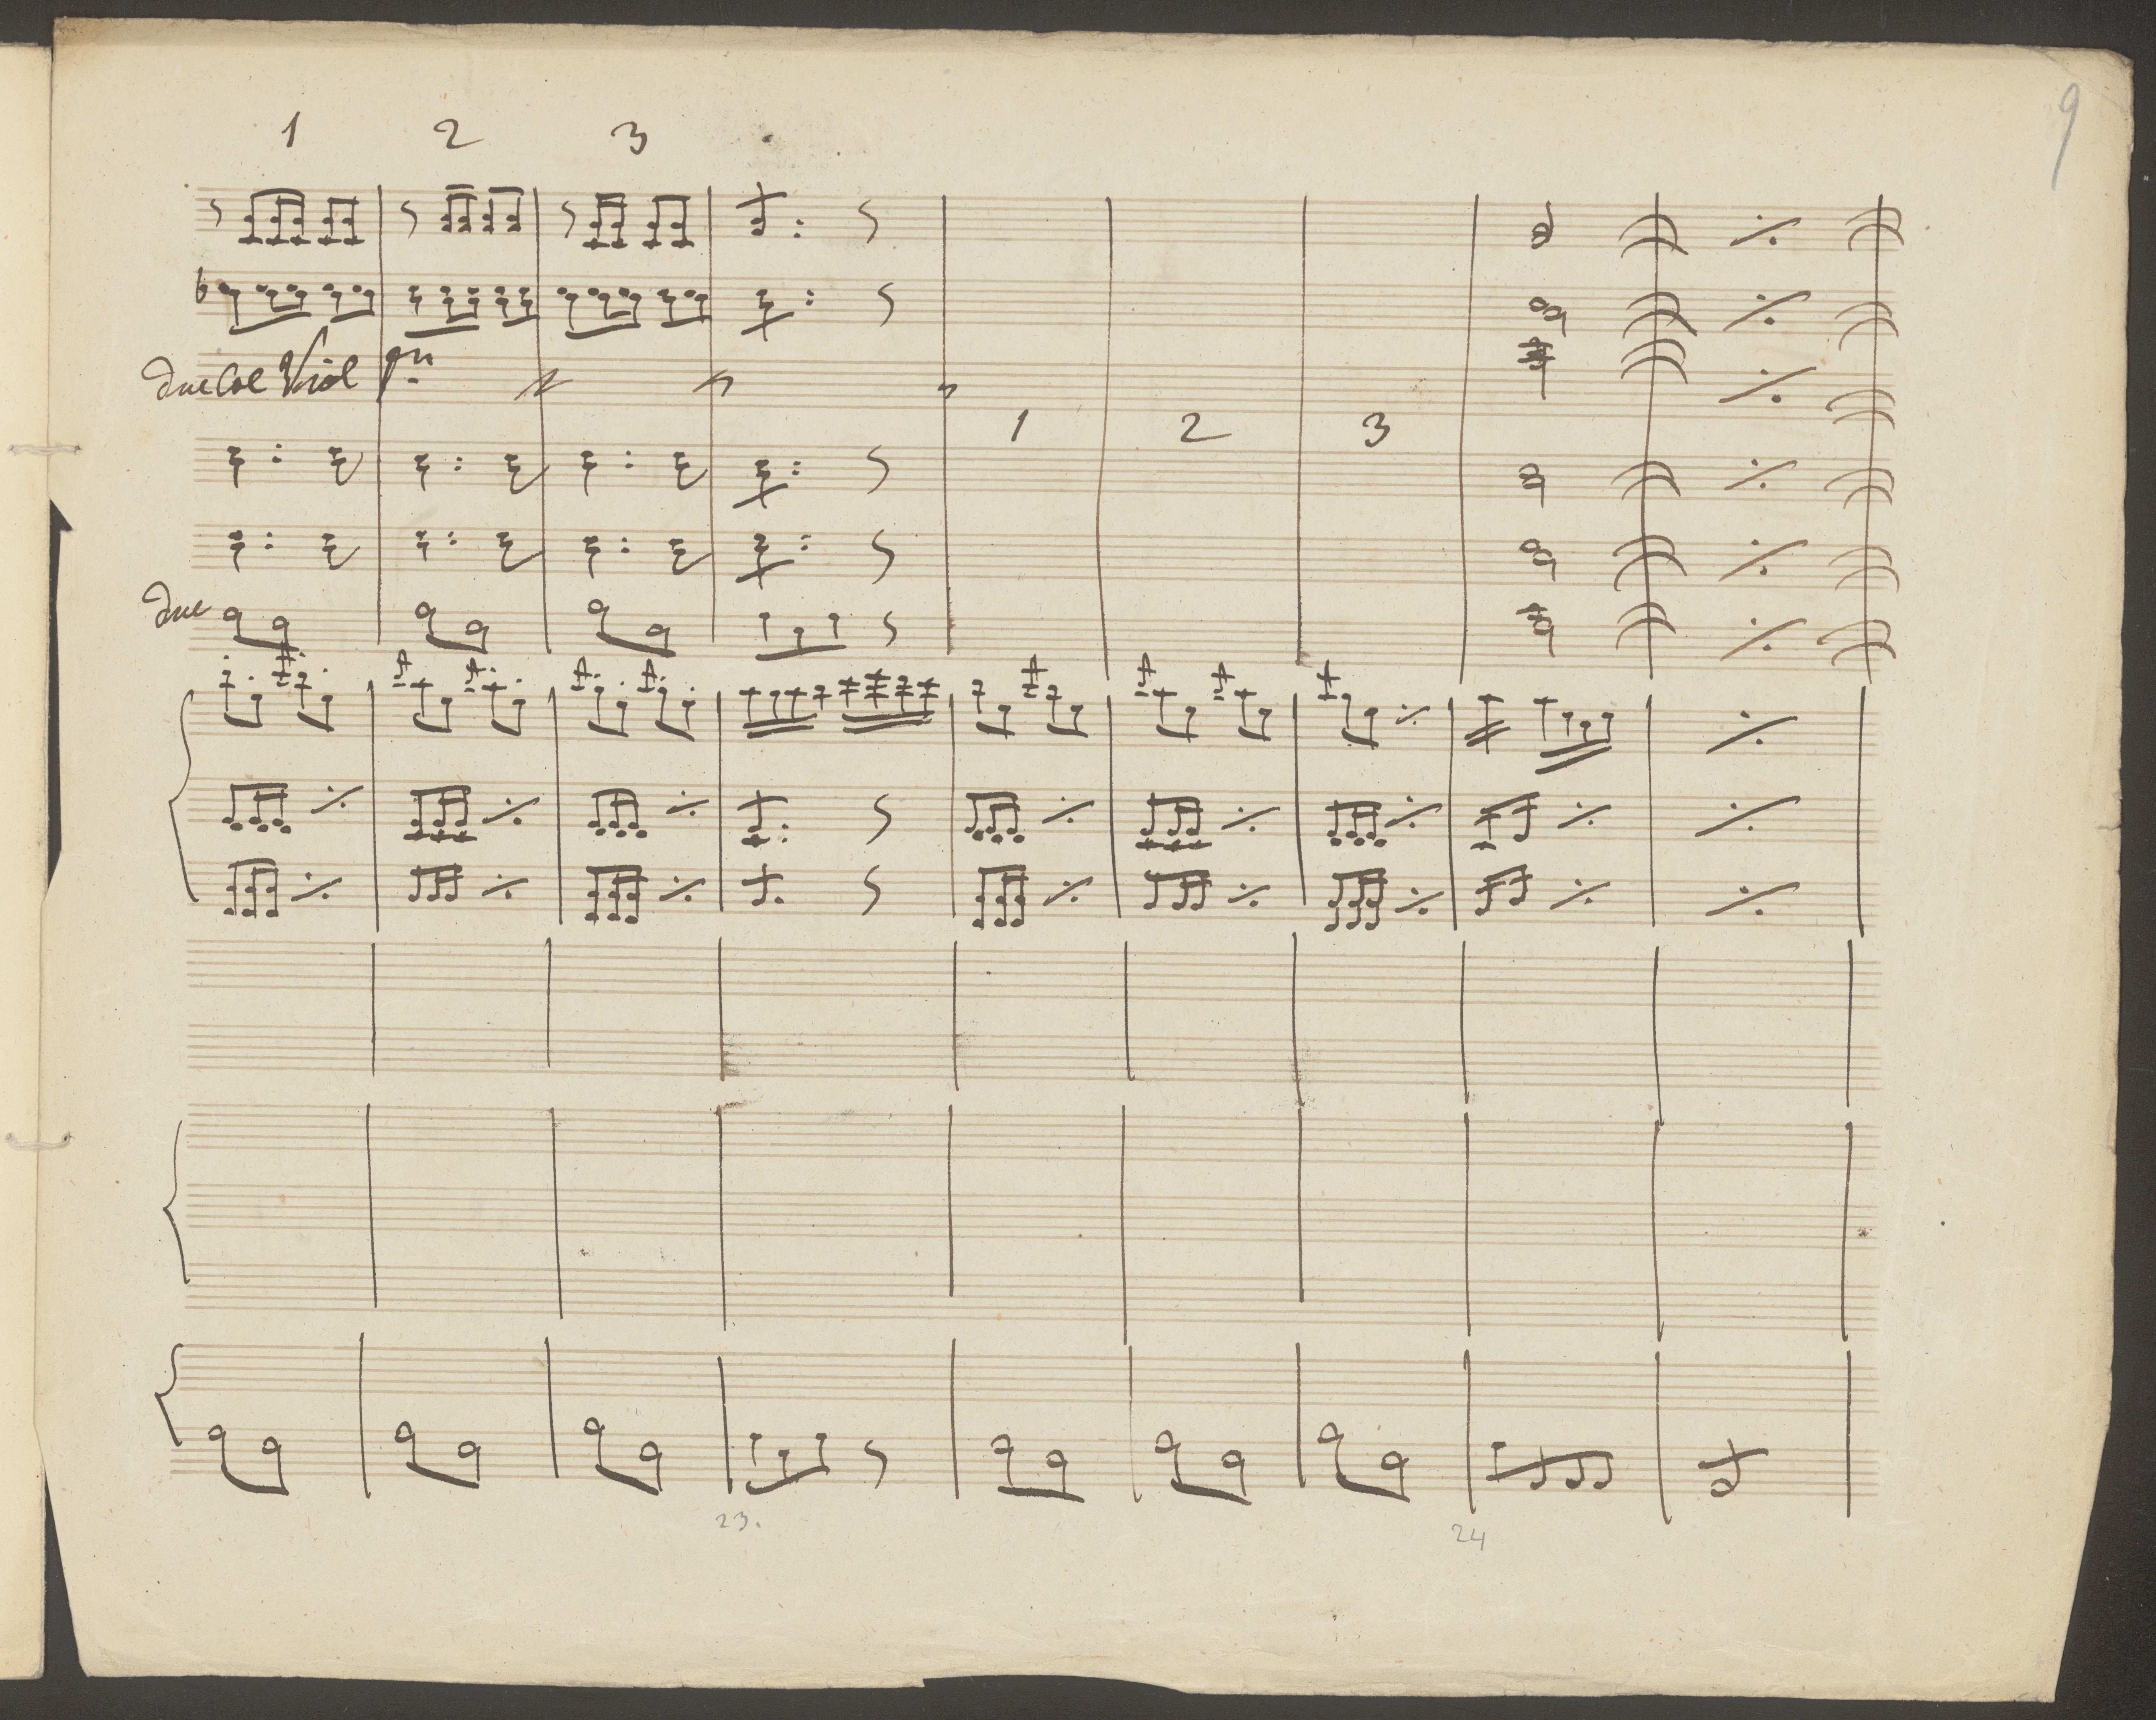 9
1 2 3
due Col Viol Pmo
1 2 3
due
23.
24